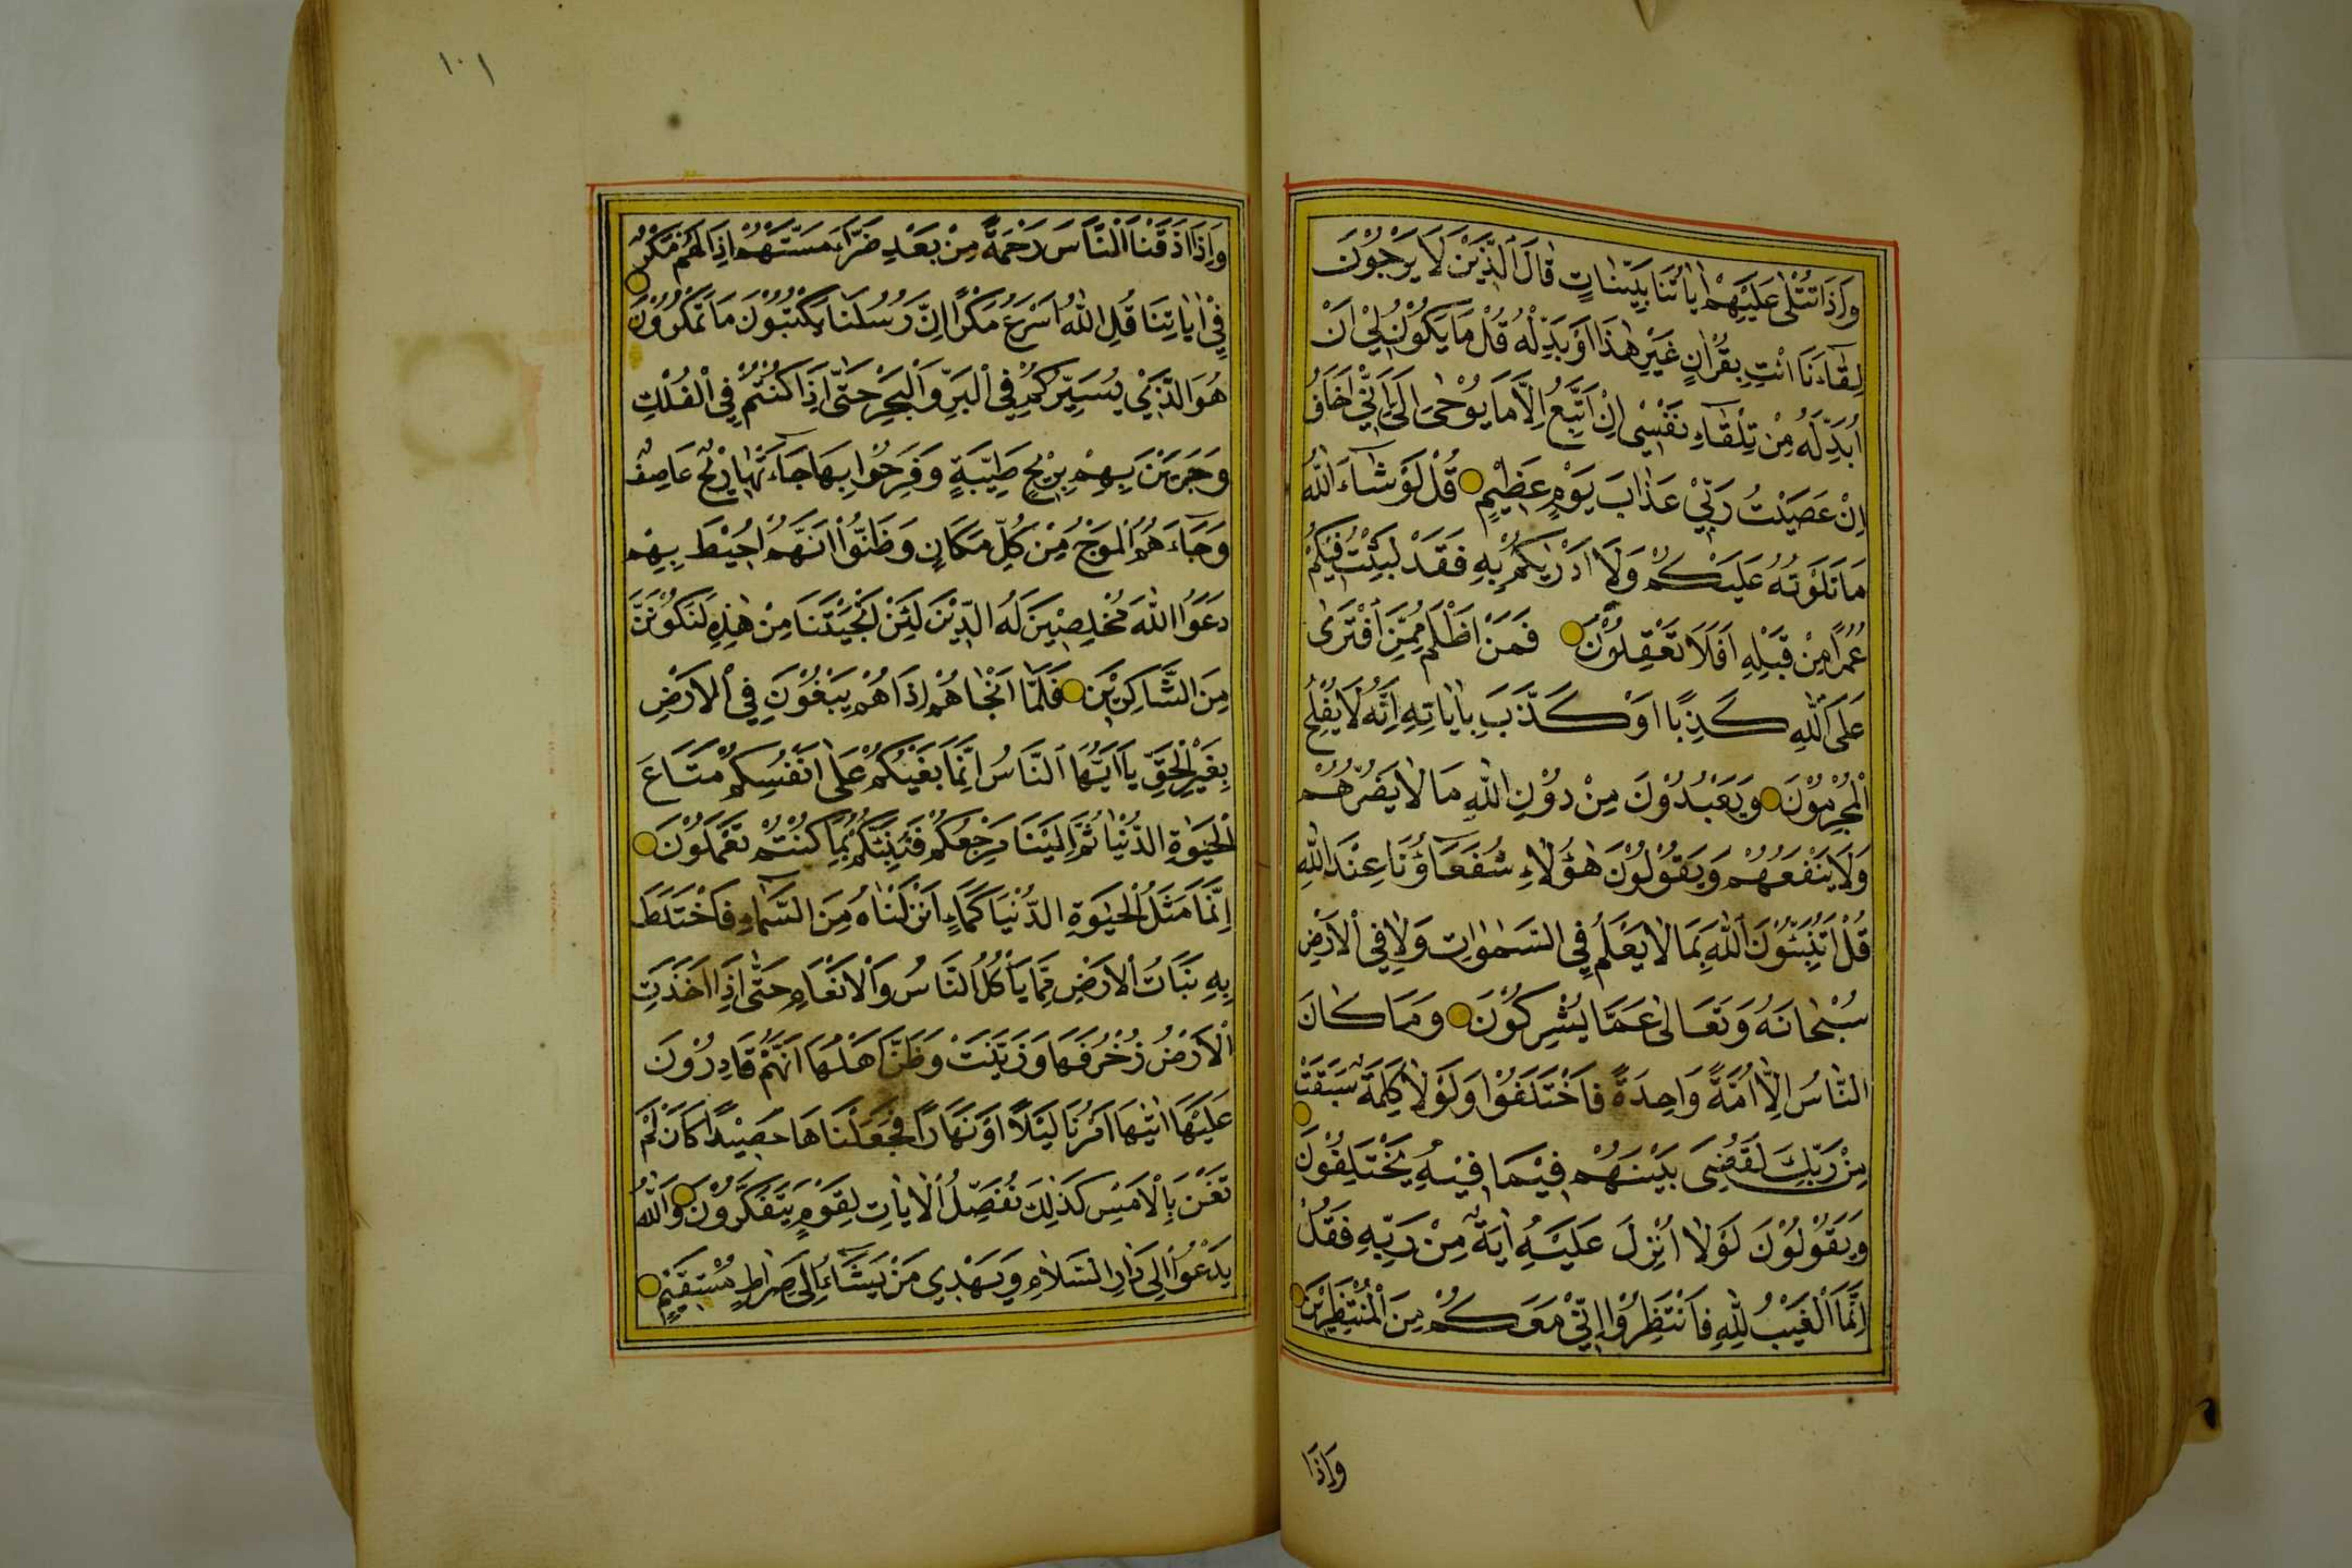 وَاِذَا تُتْلٰى عَلَيْهِمْ اٰيَاتُنَا بَيِّنَاتٍ قَالَ الَّذِيْنَ لَا يَرْجُوْنَ
لِقَاءَنَا ائْتِ بِقُرْاٰنٍ غَيْرِ هٰذَا اَوْ بَدِّلْهُ قُلْ مَا يَكُوْنُ لِيْ اَنْ
اُبَدِّلَهُ مِنْ تِلْقَاءِ نَفْسِي اِنْ اَتَّبِعُ اِلَّا مَا يُوْحٰى اِلَيَّ اِنِّي اَخَافُ
اِنْ عَصَيْتُ رَبِّيْ عَذَابَ يَوْمٍ عَظِيْمٍ قُلْ لَوْ شَاءَ اللّٰهُ
مَا تَلَوْتُهُ عَلَيْكُمْ وَلَا اَدْرٰيكُمْ بِهِ فَقَدْ لَبِثْتُ فِيْكُمْ
عُمُرًا مِنْ قَبْلِهِ اَفَلَا تَعْقِلُوْنَ فَمَنْ اَظْلَمُ مِمَّنِ افْتَرٰى
عَلَى اللّٰهِ كَذِبًا اَوْ كَذَّبَ بِاٰيَاتِهِ اِنَّهُ لَا يُفْلِحُ
الْمُجْرِمُوْنَ وَيَعْبُدُوْنَ مِنْ دُوْنِ اللّٰهِ مَا لَا يَضُرُّهُمْ
وَلَا يَنْفَعُهُمْ وَيَقُوْلُوْنَ هٰؤُلَاءِ شُفَعَاؤُنَا عِنْدَ اللّٰهِ
قُلْ اَتُنَبِّئُوْنَ اللّٰهَ بِمَا لَا يَعْلَمُ فِي السَّمٰوَاتِ وَلَا فِي الْاَرْضِ
سُبْحَانَهُ وَتَعَالٰى عَمَّا يُشْرِكُوْنَ وَمَا كَانَ
النَّاسُ اِلَّا اُمَّةً وَاحِدَةً فَاخْتَلَفُوْا وَلَوْلَا كَلِمَةٌ سَبَقَتْ
مِنْ رَبِّكَ لَقُضِيَ بَيْنَهُمْ فِيْمَا فِيْهِ يَخْتَلِفُوْنَ
وَيَقُوْلُوْنَ لَوْلَا اُنْزِلَ عَلَيْهِ اٰيَةٌ مِنْ رَبِّهِ فَقُلْ
اِنَّمَا الْغَيْبُ لِلّٰهِ فَانْتَظِرُوْا اِنِّيْ مَعَكُمْ مِنَ الْمُنْتَظِرِيْنَ
وَاِذَا
١٠١
وَاِذَا اَذَقْنَا النَّاسَ رَحْمَةً مِنْ بَعْدِ ضَرَّاءَ مَسَّتْهُمْ اِذَا لَهُمْ مَكْرٌ
فِيْ اٰيَاتِنَا قُلِ اللّٰهُ اَسْرَعُ مَكْرًا اِنَّ رُسُلَنَا يَكْتُبُوْنَ مَا تَمْكُرُوْنَ
هُوَ الَّذِيْ يُسَيِّرُكُمْ فِي الْبَرِّ وَالْبَحْرِ حَتّٰى اِذَا كُنْتُمْ فِي الْفُلْكِ
وَجَرَيْنَ بِهِمْ بِرِيْحٍ طَيِّبَةٍ وَفَرِحُوْا بِهَا جَاءَتْهَا رِيْحٌ عَاصِفٌ
وَجَاءَهُمُ الْمَوْجُ مِنْ كُلِّ مَكَانٍ وَظَنُّوْا اَنَّهُمْ اُحِيْطَ بِهِمْ
دَعَوُا اللّٰهَ مُخْلِصِيْنَ لَهُ الدِّيْنَ لَئِنْ اَنْجَيْتَنَا مِنْ هٰذِهِ لَنَكُوْنَنَّ
مِنَ الشَّاكِرِيْنَ فَلَمَّا اَنْجَاهُمْ اِذَا هُمْ يَبْغُوْنَ فِي الْاَرْضِ
بِغَيْرِ الْحَقِّ يَا اَيُّهَا النَّاسُ اِنَّمَا بَغْيُكُمْ عَلٰى اَنْفُسِكُمْ مَتَاعَ
الْحَيٰوةِ الدُّنْيَا ثُمَّ اِلَيْنَا مَرْجِعُكُمْ فَنُنَبِّئُكُمْ بِمَا كُنْتُمْ تَعْمَلُوْنَ
اِنَّمَا مَثَلُ الْحَيٰوةِ الدُّنْيَا كَمَاءٍ اَنْزَلْنَاهُ مِنَ السَّمَاءِ فَاخْتَلَطَ
بِهِ نَبَاتُ الْاَرْضِ مِمَّا يَأْكُلُ النَّاسُ وَالْاَنْعَامُ حَتّٰى اِذَا اَخَذَتِ
الْاَرْضُ زُخْرُفَهَا وَازَّيَّنَتْ وَظَنَّ اَهْلُهَا اَنَّهُمْ قَادِرُوْنَ
عَلَيْهَا اَتٰيهَا اَمْرُنَا لَيْلًا اَوْ نَهَارًا فَجَعَلْنَاهَا حَصِيْدًا كَاَنْ لَمْ
تَغْنَ بِالْاَمْسِ كَذٰلِكَ نُفَصِّلُ الْاٰيَاتِ لِقَوْمٍ يَتَفَكَّرُوْنَ وَاللّٰهُ
يَدْعُوْا اِلٰى دَارِ السَّلَامِ وَيَهْدِي مَنْ يَشَاءُ اِلٰى صِرَاطٍ مُسْتَقِيْمٍ